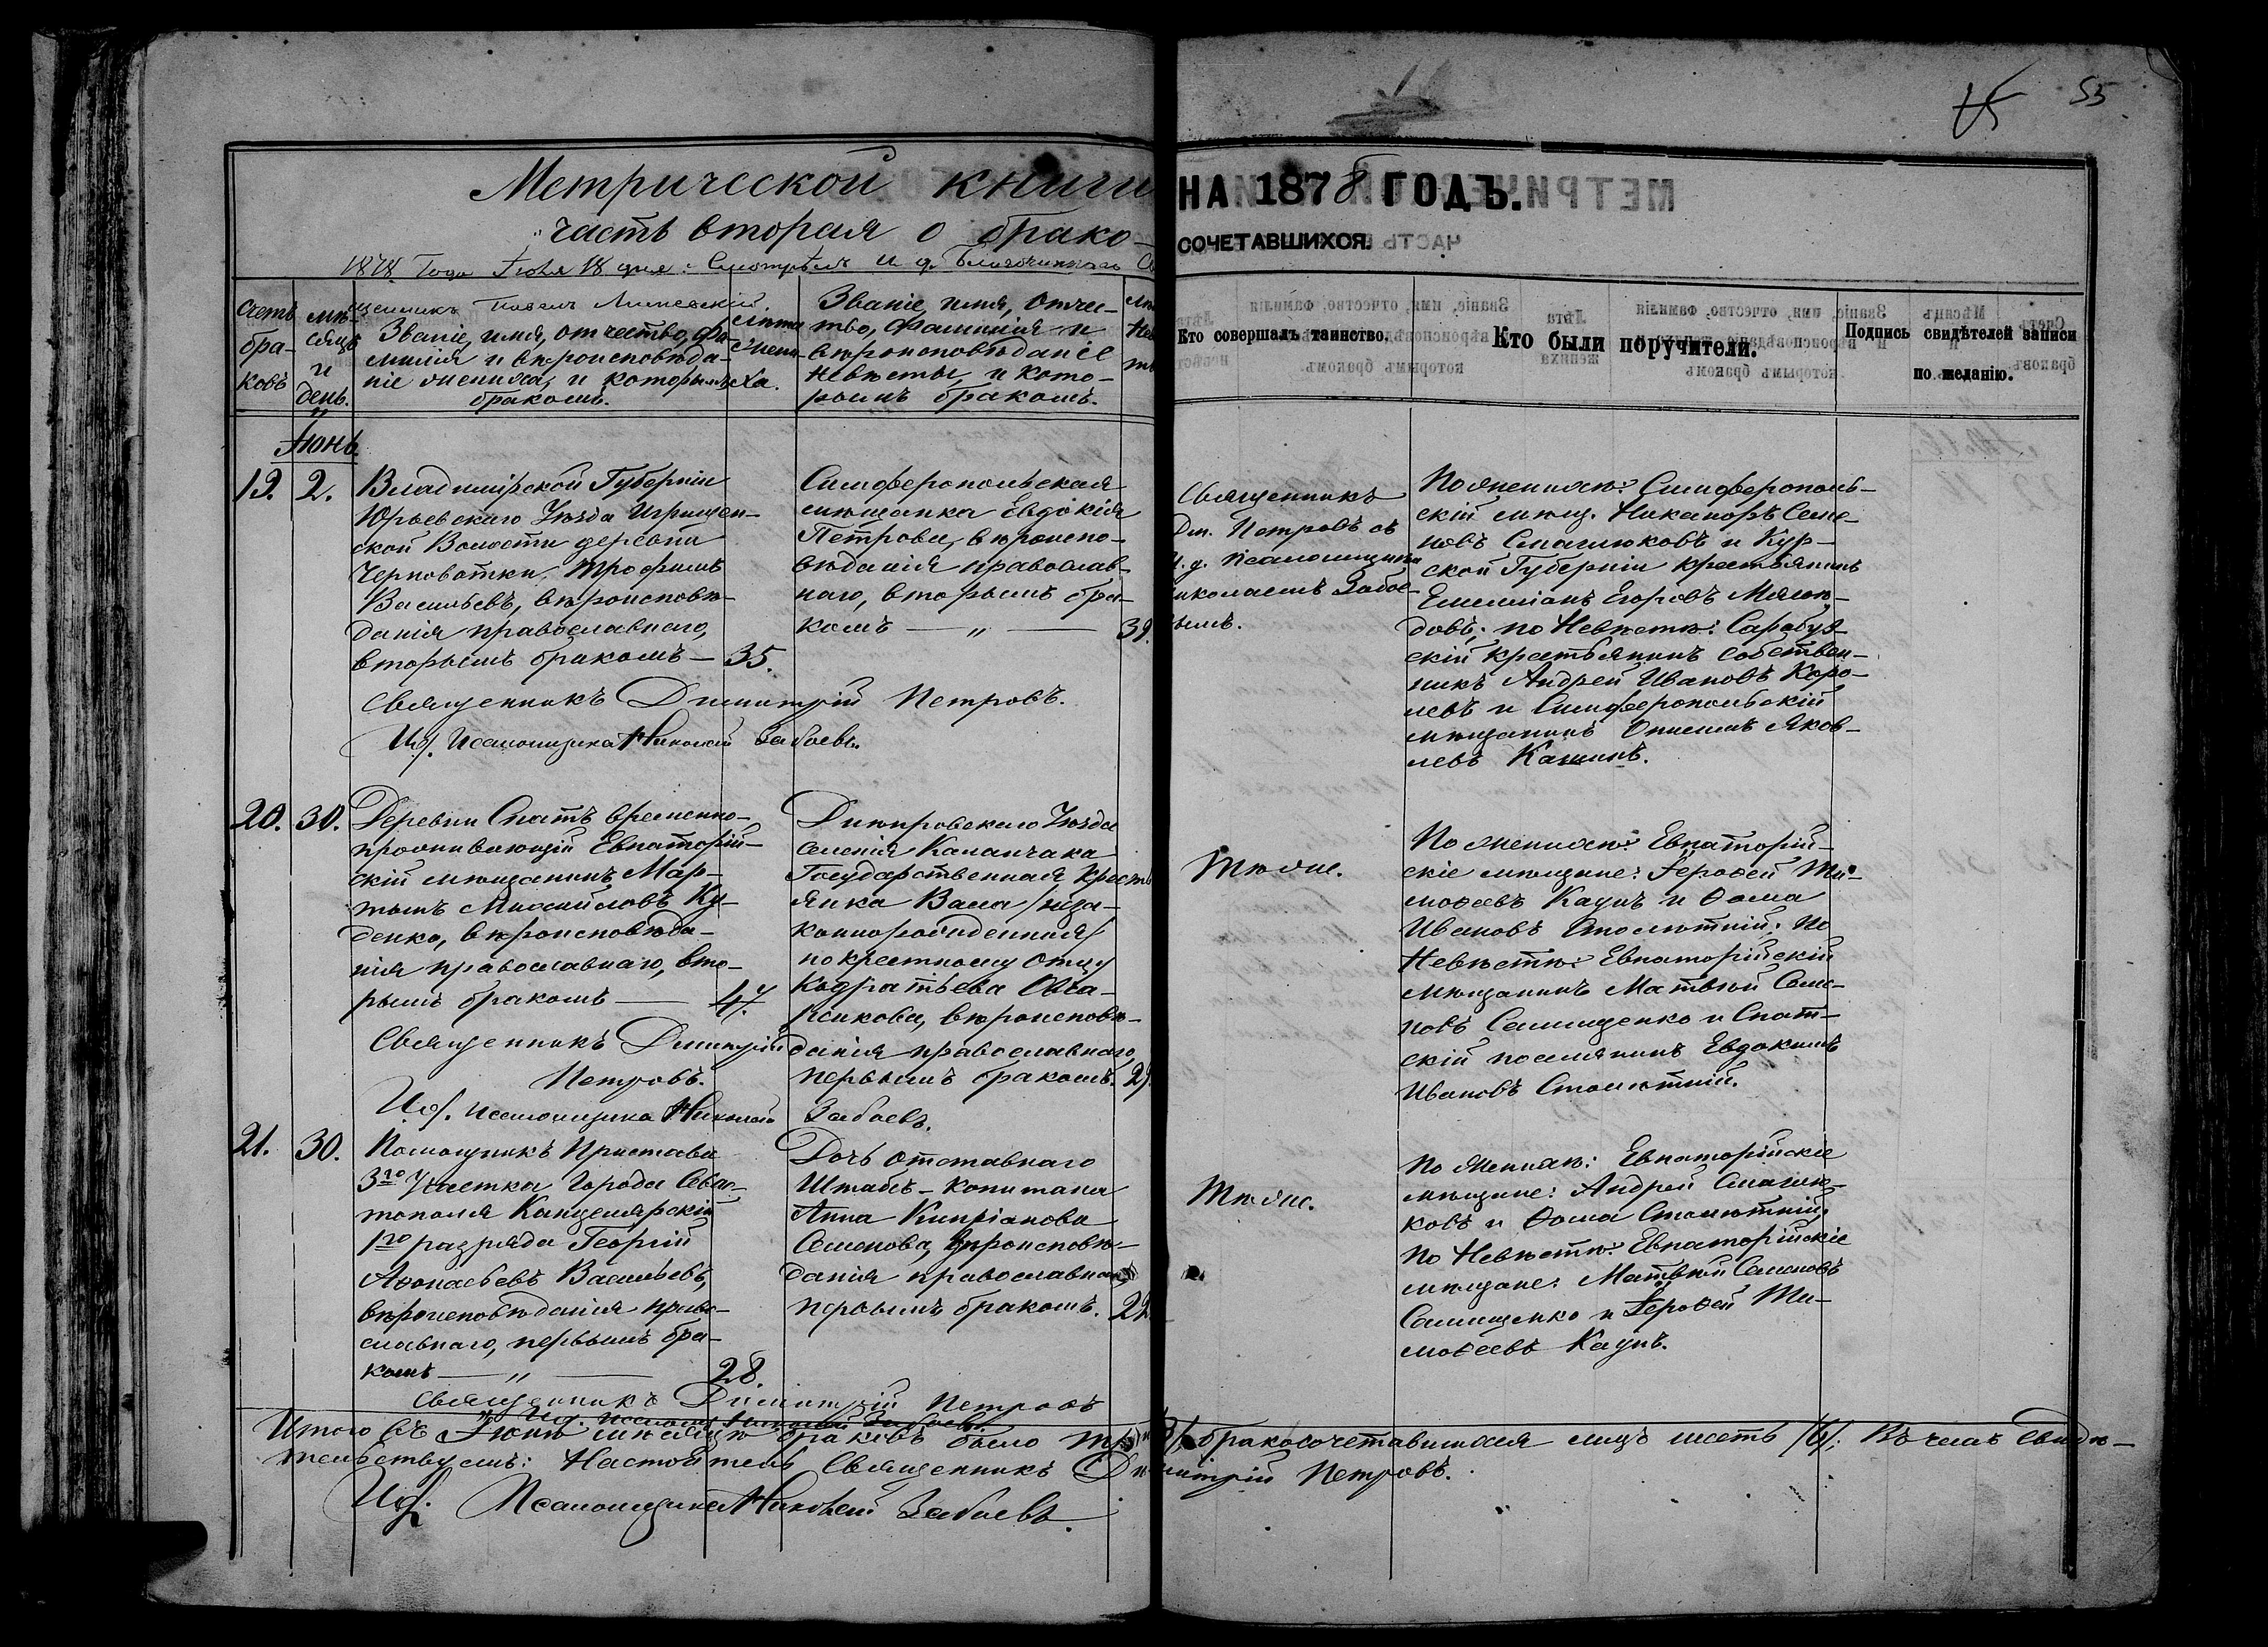 55
Метрической книги НА 1878 ГОДЪ.
часть вторая о брако- СОЧЕТАВШИХСЯ.
1878 Года Іюля 18 дня: Смотрѣлъ И д. Благочиннаго
щенникъ Павелъ
Счетъ бра- ковъ
мѣ- сяцъ и день.
Званіе, имя, отчество, фа-
милія и вѣроисповѣда-
ніе жениха, и которымъ
бракомъ.
Лѣта жени- ха.
Званіе, имя, отче-
тво, фамилія и
вѣроисповѣданіе
невѣсты, и кото-
рымъ бракомъ.
Кто совершалъ таинство.
Кто были поручители.
Подпись свидѣтелей записи
по желанію.
Іюнь.
19. 2.
Владимірской Губерніи
Юрьевскаго Уѣзда Игрищен-
ской Волости деревни
Черноватки, Трофимъ
Васильевъ, вѣроисповѣ-
данія православнаго,
вторымъ бракомъ — 35.
Симферопольская
мѣщанка Евдокія
Петрова, вѣроиспо-
вѣданія православ-
наго, вторымъ бра-
комъ — „ — 39.
Священникъ
Дим. Петровъ съ
И. д. псаломщика
Николаемъ Забое-
вымъ.
По женихѣ: Симферополь-
скій мѣщ. Никаноръ Семе-
новъ Смаглюковъ и Кур-
ской Губерніи крестьянинъ
Емельянъ Егоровъ
довъ; по Невѣстѣ: Сарабуз-
скій крестьянинъ собствен-
никъ Андрей Ивановъ Коро-
левъ и Симферопольскій
мѣщанинъ Онисимъ Яков-
левъ Кашинъ.
Священникъ Димитрій Петровъ.
Ид. Псаломщика Николай Забоевъ.
20. 30.
Деревни Спатъ временно-
проживающій Евпаторій-
скій мѣщанинъ Мар-
тынъ Михайловъ Ку-
денко, вѣроисповѣда-
нія православнаго, вто-
рымъ бракомъ — 47.
Днѣпровскаго Уѣзда
селенія Каланчака
Государственная кресть
янка Васса /неза-
коннорожденная/
по крестному отцу
Кодратьева Овча-
ренкова, вѣроисповѣ-
данія православнаго,
первымъ бракомъ. 29.
Тѣже.
По женихѣ: Евпаторій-
скіе мѣщане: Іерофей Ти-
мофеевъ Кацъ и Ѳома
Ивановъ Столѣтній; По
Невѣстѣ: Евпаторійскій
мѣщанинъ Матвѣй Семе-
новъ Самищенко и Спат-
скій поселянинъ Евдокимъ
Ивановъ Столѣтній.
Священникъ Димитрій
Петровъ.
Ид. псаломщика Николай Забоевъ.
21. 30.
Помощникъ Пристава
3го Участка Города Сева-
тополя Канцелярскій
1го разряда Георгій
Аѳонасьевъ Васильевъ,
вѣроисповѣданія право-
славнаго, первымъ бра-
комъ — „ — 28.
Дочь отставнаго
Штабсъ-Капитана
Анна Кипріанова
Семенова, вѣроисповѣ-
данія православнаго,
первымъ бракомъ. 22.
Тѣже.
По Женихѣ: Евпаторійскіе
мѣщане: Андрей Смаглю-
ковъ и Ѳома Столѣтній;
По Невѣстѣ: Евпаторійскіе
мѣщане: Матвѣй Семеновъ
Самищенко и Іерофей Ти-
мофеевъ Кацъ.
Священникъ Димитрій Петровъ
Ид. псаломщ. Николай Забоевъ.
Итого въ Іюнѣ мѣсяцѣ браковъ было три /3/, бракосочетавшихся лицъ шесть /6/: Въ чемъ свидѣ-
тельствуемъ: Настоятель Священникъ Димитрій Петровъ.
Ид. Псаломщика Николай Забоевъ.